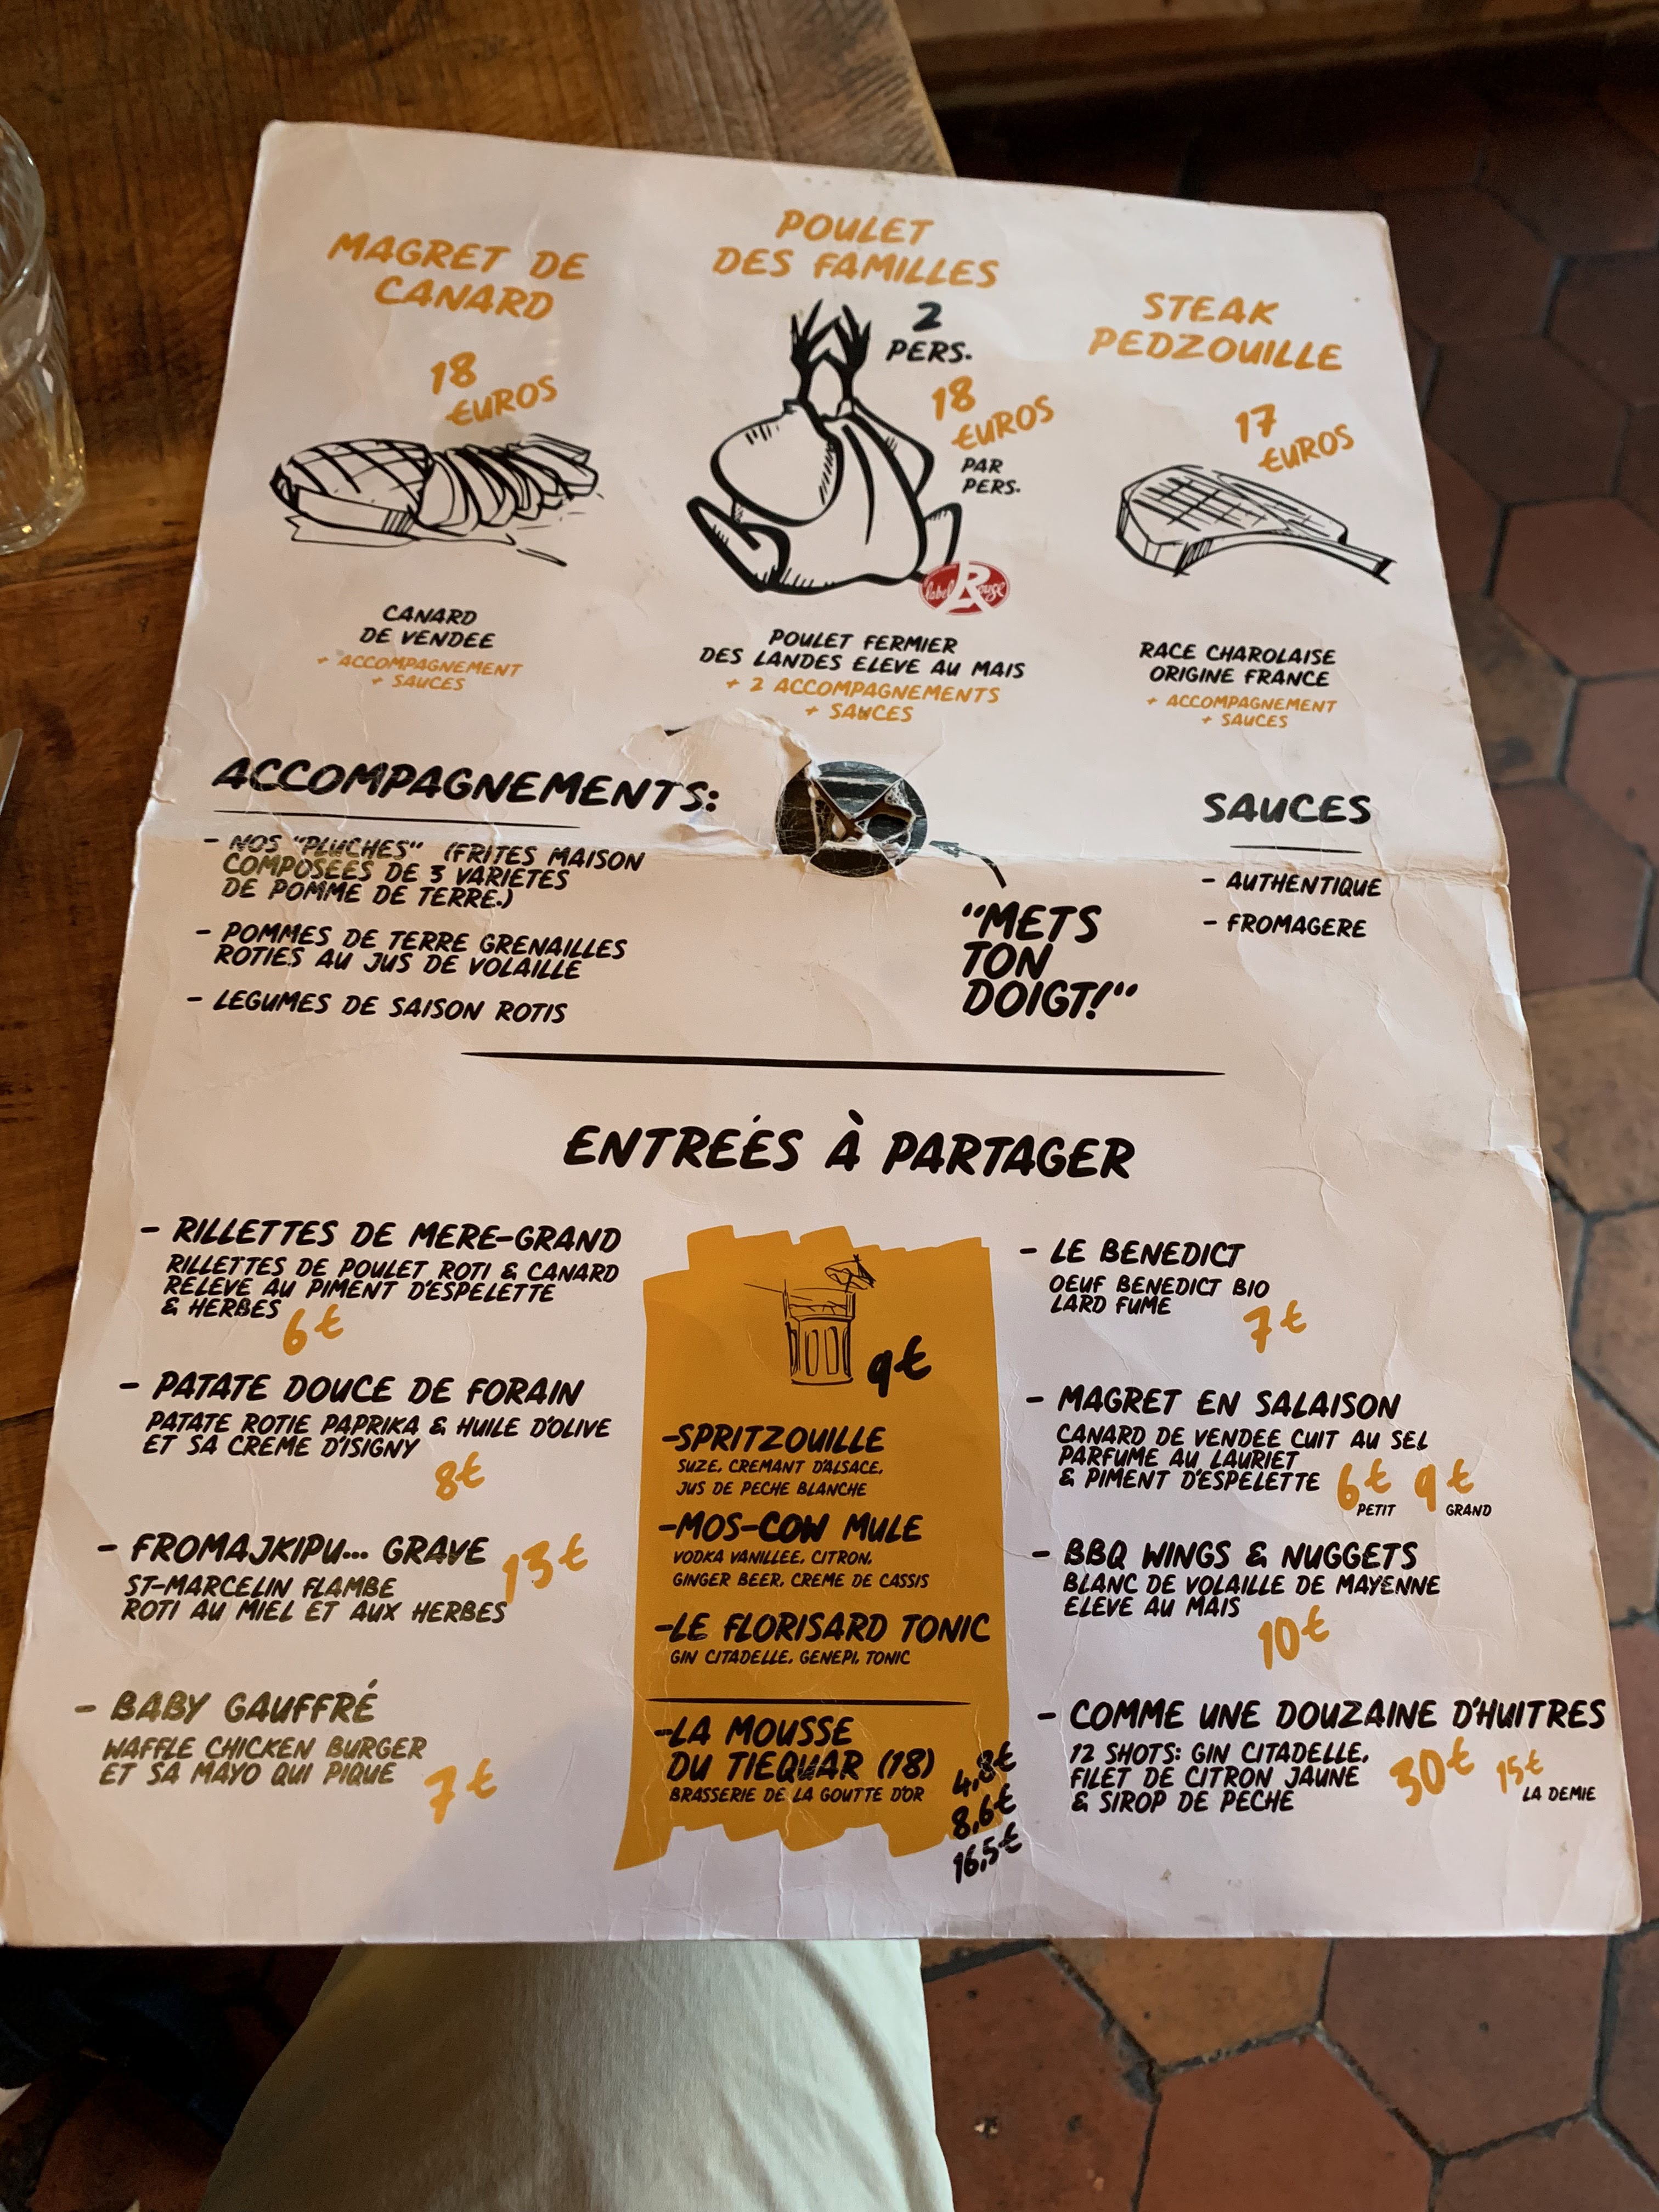 MAGRET DE
CANARD
18
EUROS
CANARD
DE VENDEE
+ ACCOMPAGNEMENT
+ SAUCES
POULET
DES FAMILLES
2
PERS.
18
EUROS
PAR
PERS.
label Rouge
POULET FERMIER
DES LANDES ELEVE AU MAIS
+ 2 ACCOMPAGNEMENTS
+ SAUCES
STEAK
PEDZOUILLE
17
EUROS
RACE CHAROLAISE
ORIGINE FRANCE
+ ACCOMPAGNEMENT
+ SAUCES
ACCOMPAGNEMENTS:
- NOS "PLUCHES" (FRITES MAISON
COMPOSEES DE 3 VARIETES
DE POMME DE TERRE.)
- POMMES DE TERRE GRENAILLES
ROTIES AU JUS DE VOLAILLE
- LEGUMES DE SAISON ROTIS
"METS
TON
DOIGT!"
SAUCES
- AUTHENTIQUE
- FROMAGERE
ENTREÉS À PARTAGER
- RILLETTES DE MERE-GRAND
RILLETTES DE POULET ROTI & CANARD
RELEVE AU PIMENT D'ESPELETTE
& HERBES
6€
- PATATE DOUCE DE FORAIN
PATATE ROTIE PAPRIKA & HUILE D'OLIVE
ET SA CREME D'ISIGNY
8€
- FROMAJKIPU... GRAVE 13€
ST-MARCELIN FLAMBE
ROTI AU MIEL ET AUX HERBES
- BABY GAUFFRÉ
WAFFLE CHICKEN BURGER
ET SA MAYO QUI PIQUE
7€
9€
-SPRITZOUILLE
SUZE, CREMANT D'ALSACE,
JUS DE PECHE BLANCHE
-MOS-COW MULE
VODKA VANILLEE, CITRON,
GINGER BEER, CREME DE CASSIS
-LE FLORISARD TONIC
GIN CITADELLE, GENEPI, TONIC
-LA MOUSSE
DU TIEQUAR (18)
BRASSERIE DE LA GOUTTE D'OR
4,8€
8,6€
16,5€
- LE BENEDICT
OEUF BENEDICT BIO
LARD FUME
7€
- MAGRET EN SALAISON
CANARD DE VENDEE CUIT AU SEL
PARFUME AU LAURIET
& PIMENT D'ESPELETTE 6€ 9€
PETIT GRAND
- BBQ WINGS & NUGGETS
BLANC DE VOLAILLE DE MAYENNE
ELEVE AU MAIS
10€
- COMME UNE DOUZAINE D'HUITRES
12 SHOTS: GIN CITADELLE,
FILET DE CITRON JAUNE
& SIROP DE PECHE
30€ 15€
LA DEMIE